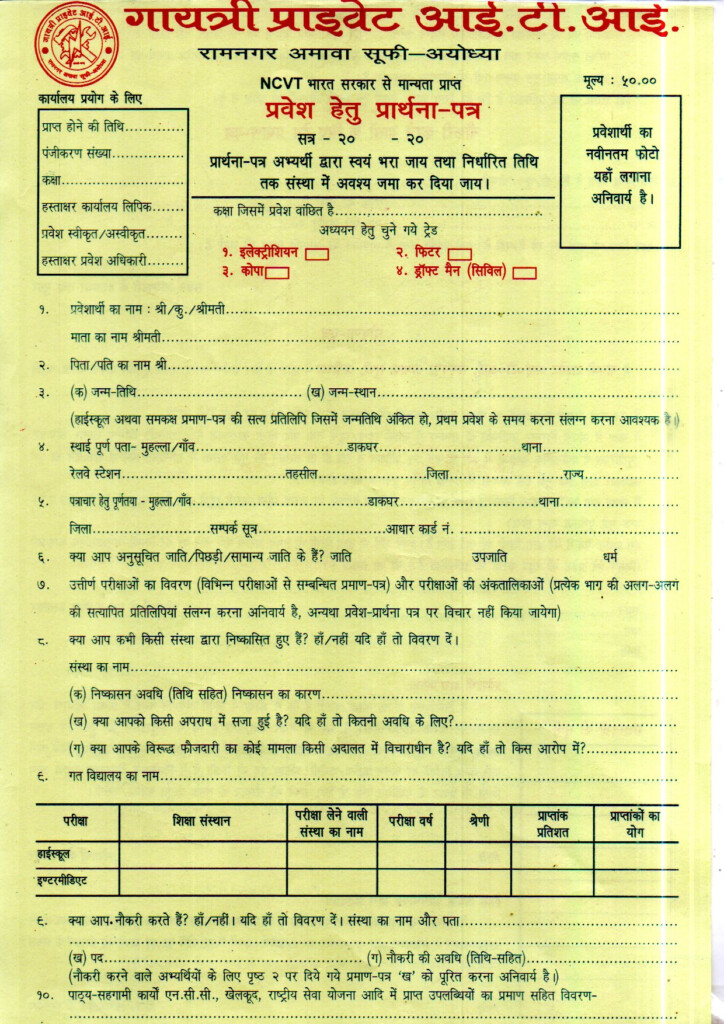 गायत्री प्राइवेट आई.टी.आई.
रामनगर अमावा सूफी–अयोध्या
NCVT भारत सरकार से मान्यता प्राप्त
मूल्य : ५०.००
कार्यालय प्रयोग के लिए
प्रवेश हेतु प्रार्थना-पत्र
प्राप्त होने की तिथि.............
पंजीकरण संख्या..................
कक्षा...............................
हस्ताक्षर कार्यालय लिपिक.......
प्रवेश स्वीकृत/अस्वीकृत.........
हस्ताक्षर प्रवेश अधिकारी........
सत्र - २० - २०
प्रार्थना-पत्र अभ्यर्थी द्वारा स्वयं भरा जाय तथा निर्धारित तिथि
तक संस्था में अवश्य जमा कर दिया जाय।
प्रवेशार्थी का
नवीनतम फोटो
यहाँ लगाना
अनिवार्य है।
कक्षा जिसमें प्रवेश वांछित है.............................................
अध्ययन हेतु चुने गये ट्रेड
१. इलेक्ट्रीशियन २. फिटर
३. कोपा ४. ड्रॉफ्ट मैन (सिविल)
१. प्रवेशार्थी का नाम : श्री/कु./श्रीमती.............................................
माता का नाम श्रीमती.............................................
२. पिता/पति का नाम श्री.............................................
३. (क) जन्म-तिथि............................. (ख) जन्म-स्थान.............................
(हाईस्कूल अथवा समकक्ष प्रमाण-पत्र की सत्य प्रतिलिपि जिसमें जन्मतिथि अंकित हो, प्रथम प्रवेश के समय करना संलग्न करना आवश्यक है।)
४. स्थाई पूर्ण पता- मुहल्ला/गाँव.............................डाकघर.............................थाना.............................
रेलवे स्टेशन.............................तहसील.............................जिला.............................राज्य.............................
५. पत्राचार हेतु पूर्णतया - मुहल्ला/गाँव.............................डाकघर.............................थाना.............................
जिला.............................सम्पर्क सूत्र.............................आधार कार्ड नं. .............................
६. क्या आप अनुसूचित जाति/पिछड़ी/सामान्य जाति के हैं? जाति उपजाति धर्म
७. उत्तीर्ण परीक्षाओं का विवरण (विभिन्न परीक्षाओं से सम्बन्धित प्रमाण-पत्र) और परीक्षाओं की अंकतालिकाओं (प्रत्येक भाग की अलग-अलग
की सत्यापित प्रतिलिपियां संलग्न करना अनिवार्य है, अन्यथा प्रवेश-प्रार्थना पत्र पर विचार नहीं किया जायेगा)
८. क्या आप कभी किसी संस्था द्वारा निष्कासित हुए हैं? हाँ/नहीं यदि हाँ तो विवरण दें।
संस्था का नाम.............................................
(क) निष्कासन अवधि (तिथि सहित) निष्कासन का कारण.............................................
(ख) क्या आपको किसी अपराध में सजा हुई है? यदि हाँ तो कितनी अवधि के लिए?.............................................
(ग) क्या आपके विरूद्ध फौजदारी का कोई मामला किसी अदालत में विचाराधीन है? यदि हाँ तो किस आरोप में?......................
९. गत विद्यालय का नाम.............................................
परीक्षा शिक्षा संस्थान परीक्षा लेने वाली संस्था का नाम परीक्षा वर्ष श्रेणी प्राप्तांक प्रतिशत प्राप्तांकों का योग
हाईस्कूल
इण्टरमीडिएट
९. क्या आप नौकरी करते हैं? हाँ/नहीं। यदि हाँ तो विवरण दें। संस्था का नाम और पता.............................................
(ख) पद............................................. (ग) नौकरी की अवधि (तिथि-सहित).............................
(नौकरी करने वाले अभ्यर्थियों के लिए पृष्ठ २ पर दिये गये प्रमाण-पत्र 'ख' को पूरित करना अनिवार्य है।)
१०. पाठ्य-सहगामी कार्यों एन.सी.सी., खेलकूद, राष्ट्रीय सेवा योजना आदि में प्राप्त उपलब्धियों का प्रमाण सहित विवरण-